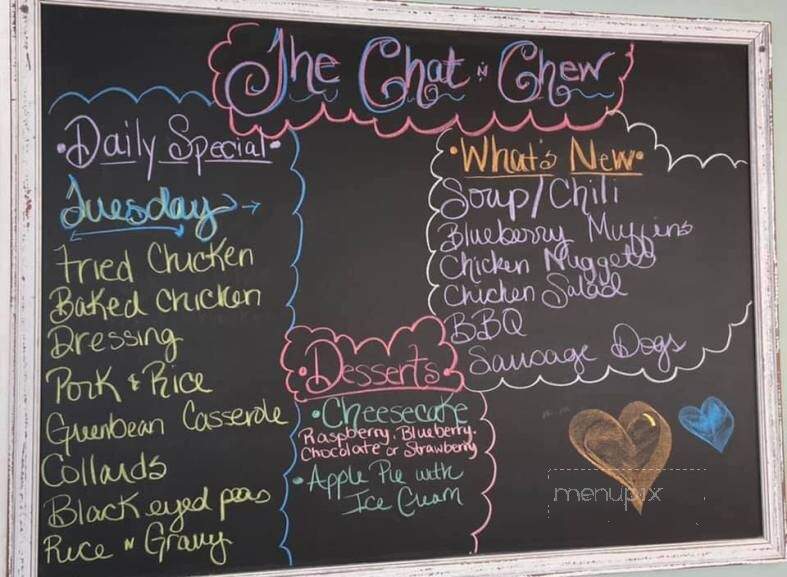 The Chat n Chew
Daily Special
Tuesday
Fried Chicken
Baked Chicken
Dressing
Pork & Rice
Greenbean Casserole
Collards
Black eyed peas
Rice n Gravy
Desserts
Cheesecake
Raspberry, Blueberry,
Chocolate or Strawberry
Apple Pie with
Ice Cream
What's New
Soup/Chili
Blueberry Muffins
Chicken Nuggets
Chicken Salad
BBQ
Sausage Dogs
menupix